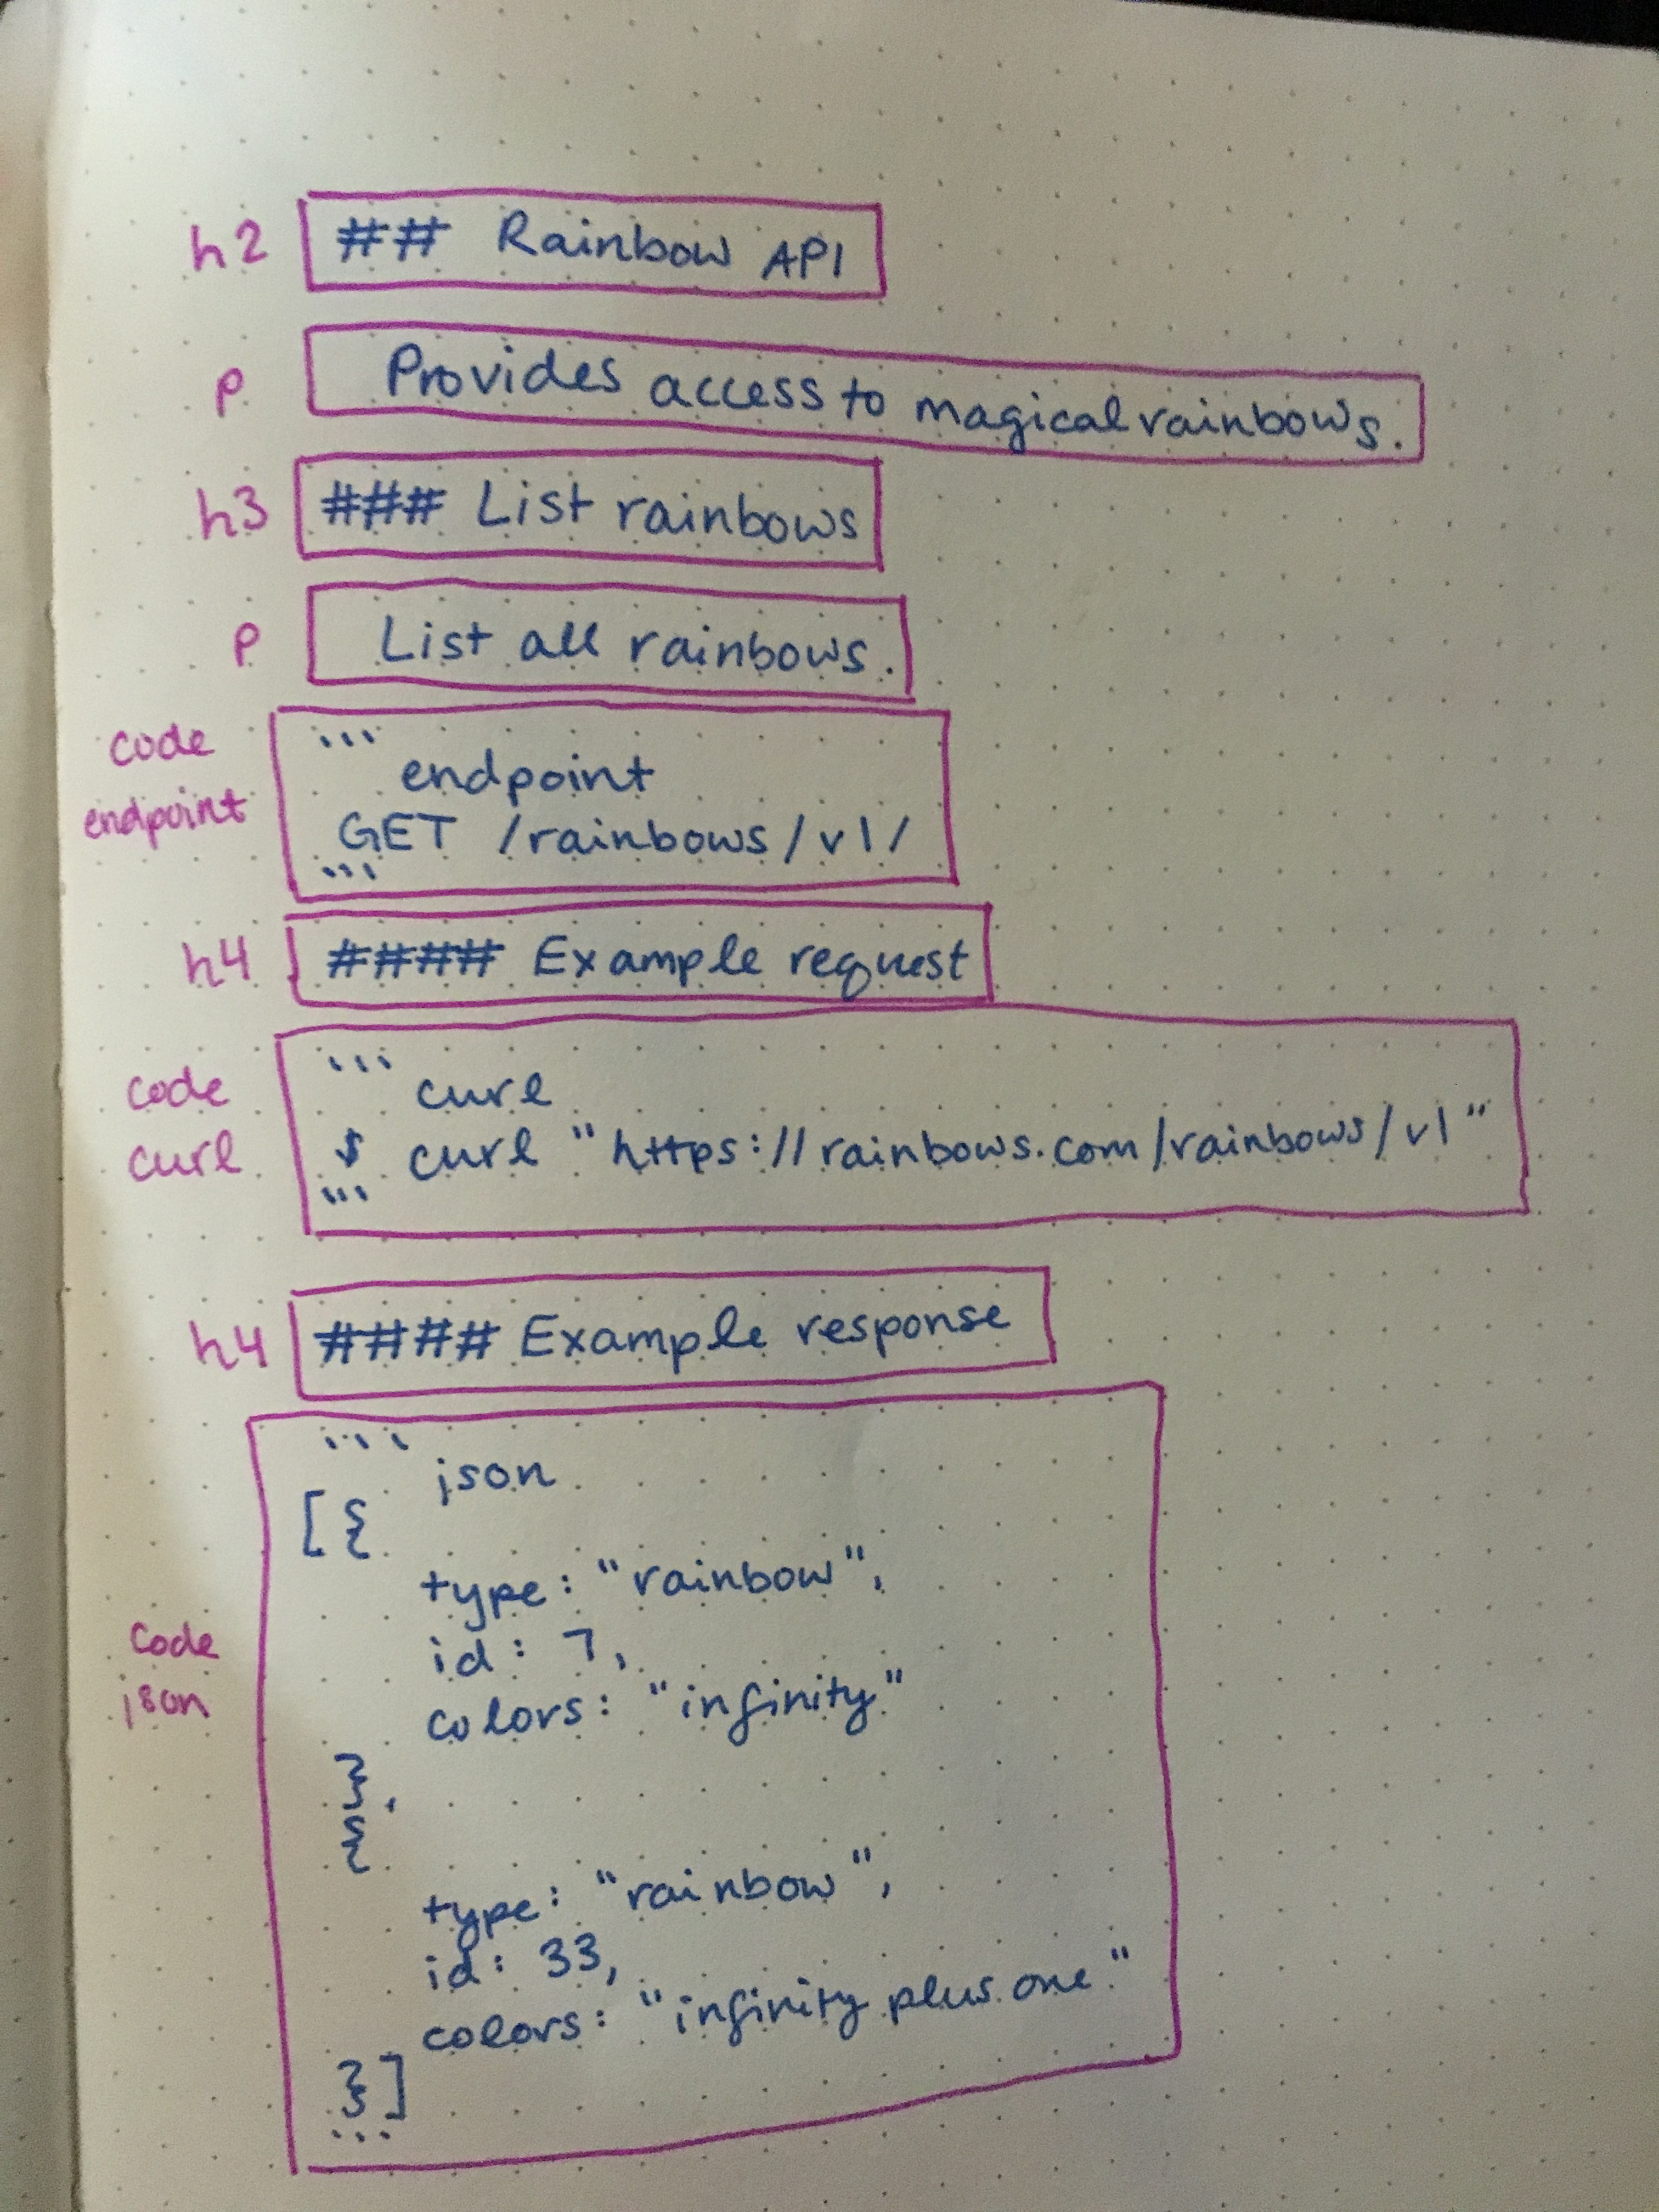 h2 ## Rainbow API
p Provides access to magical rainbows.
h3 ### List rainbows
p List all rainbows.
code
endpoint
```
endpoint
GET /rainbows/v1/
```
h4 #### Example request
code
curl
```
curl
$ curl "https://rainbows.com/rainbows/v1"
```
h4 #### Example response
code
json
```
json
[{
type: "rainbow",
id: 7,
colors: "infinity"
},
{
type: "rainbow",
id: 33,
colors: "infinity plus one"
}]
```